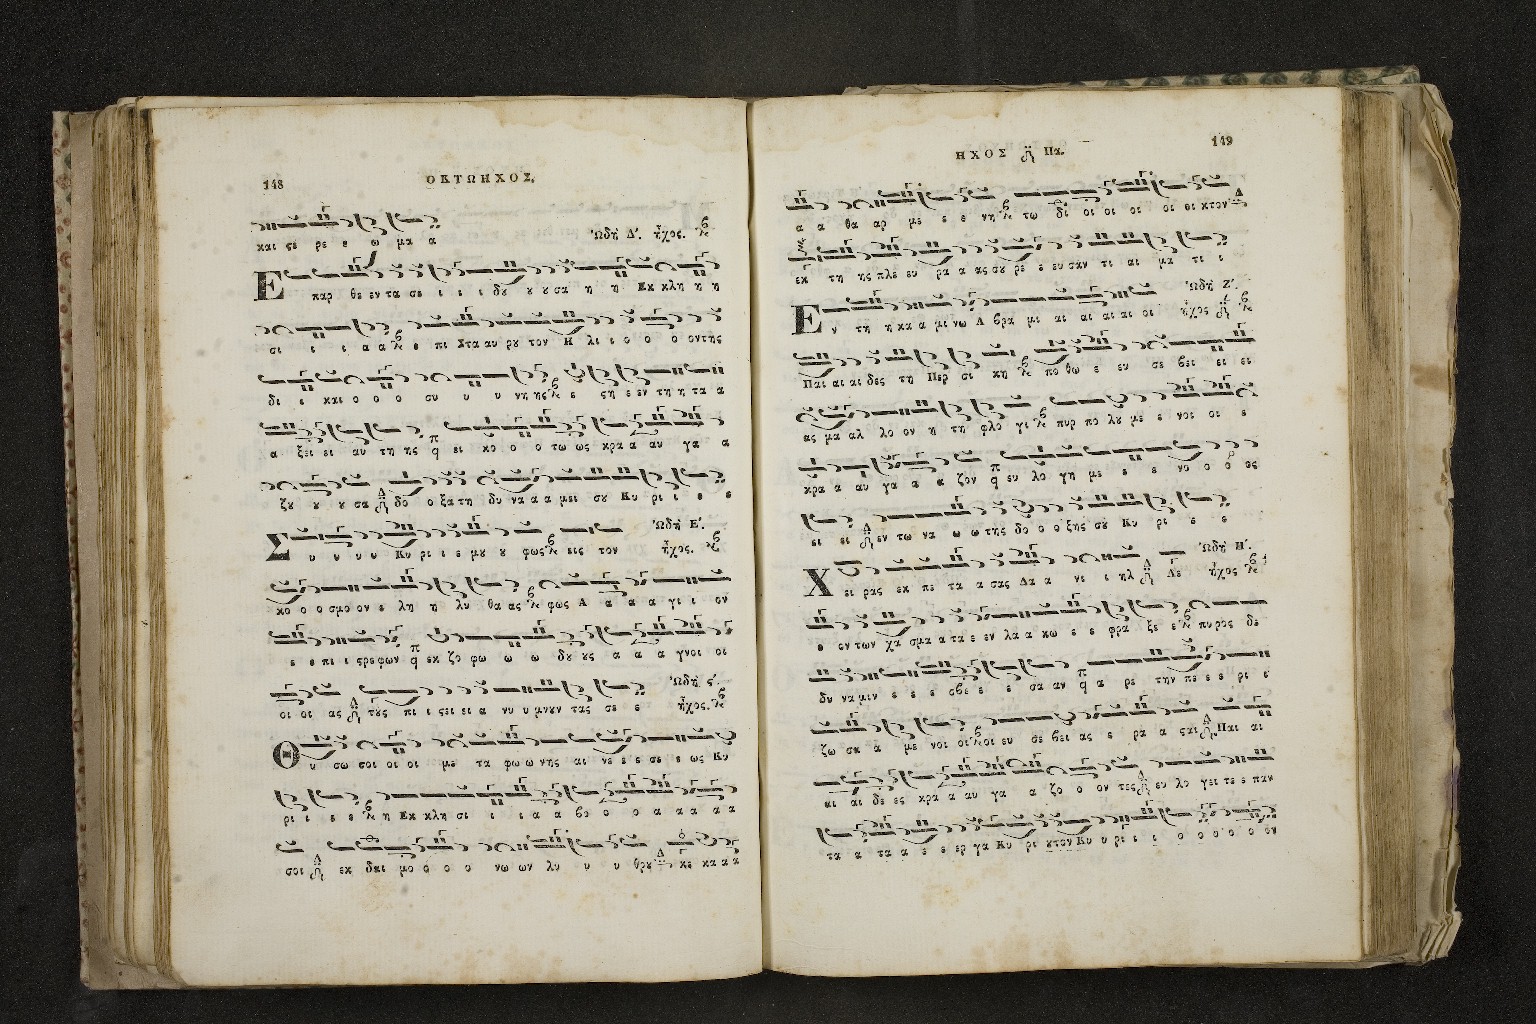 148
ΟΚΤΩΗΧΟΣ.
και ςε ρε ε ω μα α
Ὠδὴ Δ'. ἦχος.
Ε παρ θε εν τα σε ι ι ι δυ υ υ σα η η Εκ κλη η η
σι ι ι α α ε πι Στα αυ ρυ τον Η λι ι ο ο ο ον της
δι ι και ο ο ο συ υ υ νη ης ε ςη ε εν τη η τα α
α ξει ει αυ τη ης ει κο ο ο τω ως κρα α αυ γα α
ζυ υ υ υ σα δο ο ξα τη δυ να α α μει συ Κυ ρι ι ε ε
Ὠδὴ Ε'.
Σ υ υ υ υ Κυ ρι ι ε μυ υ φως εις τον
ἦχος.
κο ο ο σμο ον ε λη η λυ θα ας φως Α α α α γι ι ον
ε ε πι ι ςρε φων εκ ζο φω ω ω δυ υς α α α γνοι οι
Ὠδὴ ς'.
οι οι ας τυς πι ι ςει ει α νυ υ μνυν τας σε ε
ἦχος.
Θ υ σω σοι οι οι με τα φω ω νης αι νε ε ε σε ε ως Κυ
ρι ι ε ε η Εκ κλη σι ι ι α α βο ο ο α α α α α
σοι εκ δαι μο ο ο ο νω ων λυ υ υ θρυ κε κα α α
ΗΧΟΣ Πα.
149
α α θα αρ με ε ε νη τω δι οι οι οι οι οι κτον
εκ τη ης πλε ευ ρα α ας συ ρε ε ευ σαν τι αι μα τι ι
Ὠδὴ Ζ'.
Ε ν τη η κα α μι νω Α βρα μι αι αι αι αι οι
ἦχος
Παι αι αι δες τη Περ σι κη πο θω ε ευ σε βει ει ει
ας μα αλ λο ον η τη φλο γι πυρ πο λυ με ε νοι οι ε
κρα α αυ γα α α ζον ευ λο γη με ε ε νο ο ο ος
ει ει εν τω να ω ω της δο ο ο ξης συ Κυ ρι ε ε
Ὠδὴ Η'.
Χ ει ρας εκ πε τα α σας Δα α νι ι ηλ Δε
ἦχος
ε ον των χα σμα α τα ε εν λα α κω ε ε φρα ξε ε πυρος δε
δυ να μιν ε ε ε σβε ε ε σα αν α ρε την πε ε ε ρι ε
ζω σα α με νοι οι οι ευ σε βει ας ε ρα α ςαι Παι αι
αι αι δε ες κρα α αυ γα α ζο ο ον τες ευ λο γει τε ε παν
τα α τα α ε ε ερ γα Κυ ρι υ τον Κυ υ ρι ι ι ο ο ο ο ο ον